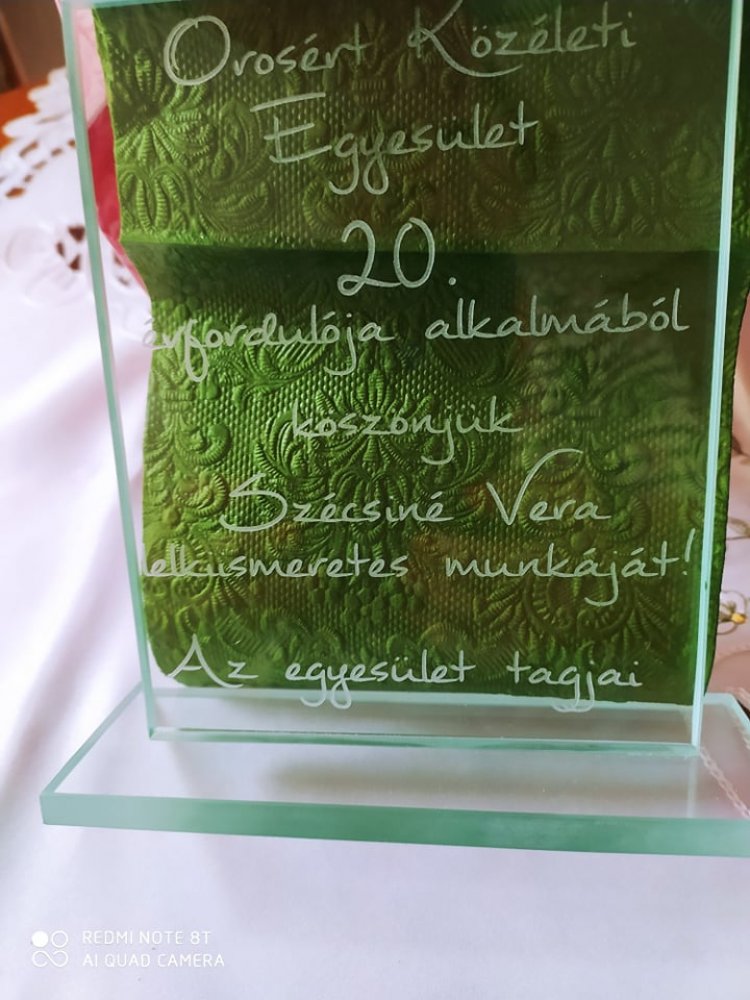 Orosért Közéleti
Egyesület
20.
évfordulója alkalmából
köszönjük
Szécsiné Vera
lelkiismeretes munkáját!
Az egyesület tagjai
REDMI NOTE 8T
AI QUAD CAMERA